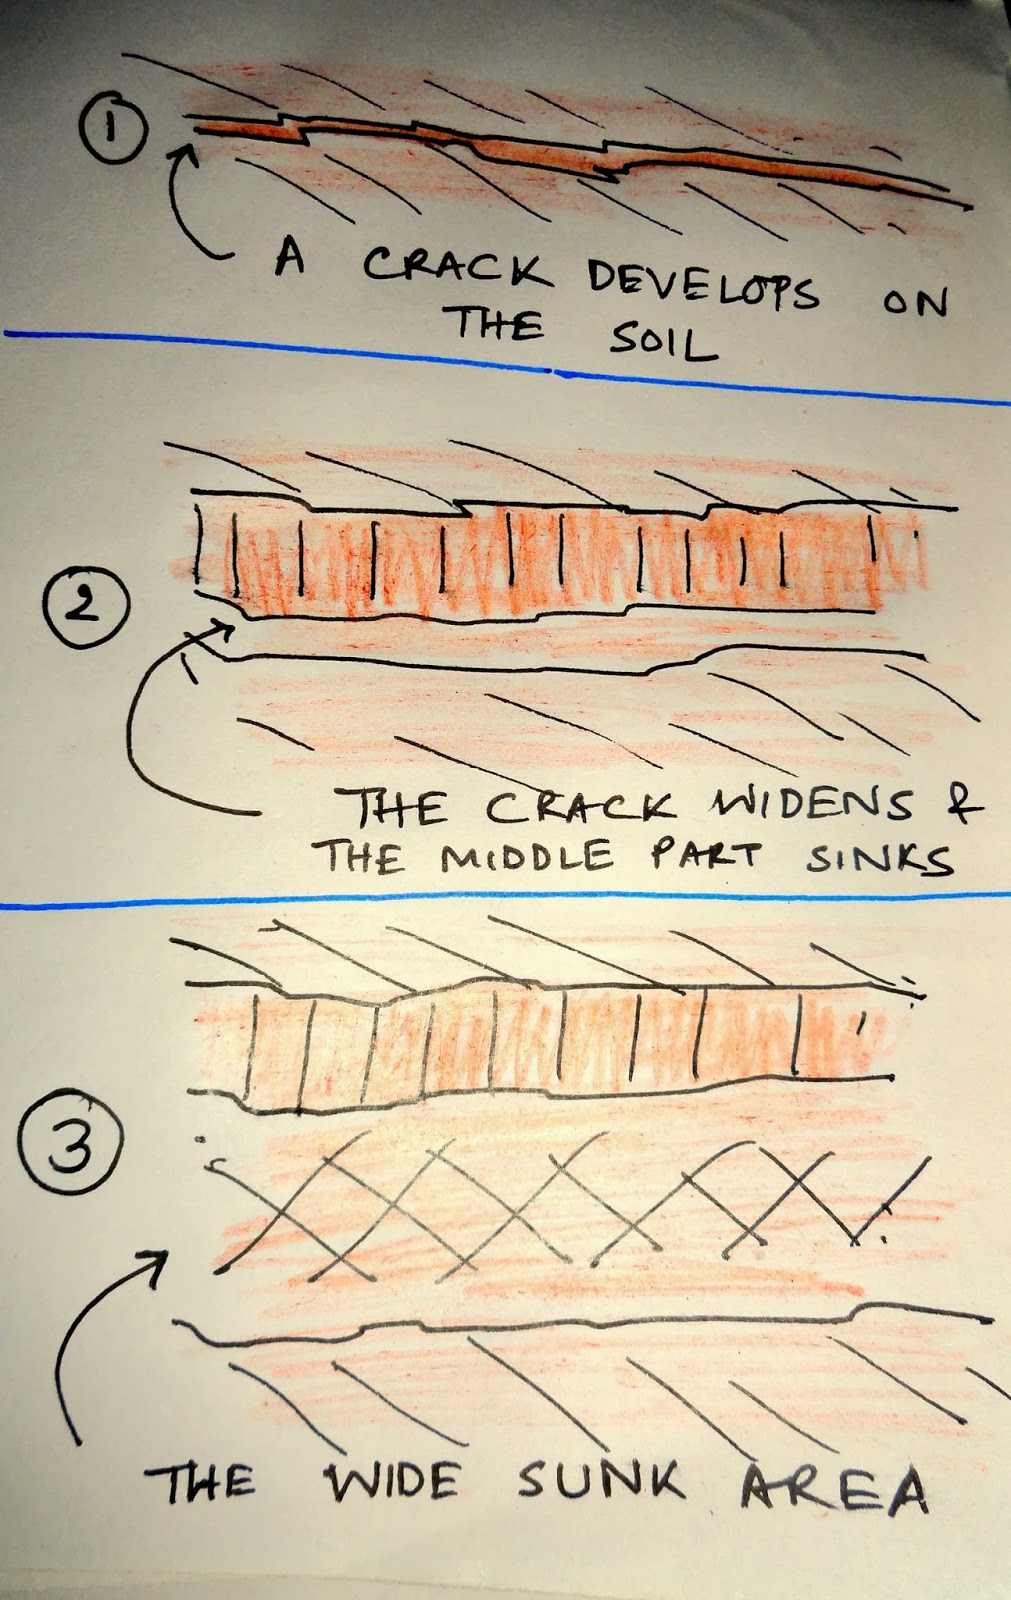 1
A CRACK DEVELOPS ON
THE SOIL
2
THE CRACK WIDENS &
THE MIDDLE PART SINKS
3
THE WIDE SUNK AREA